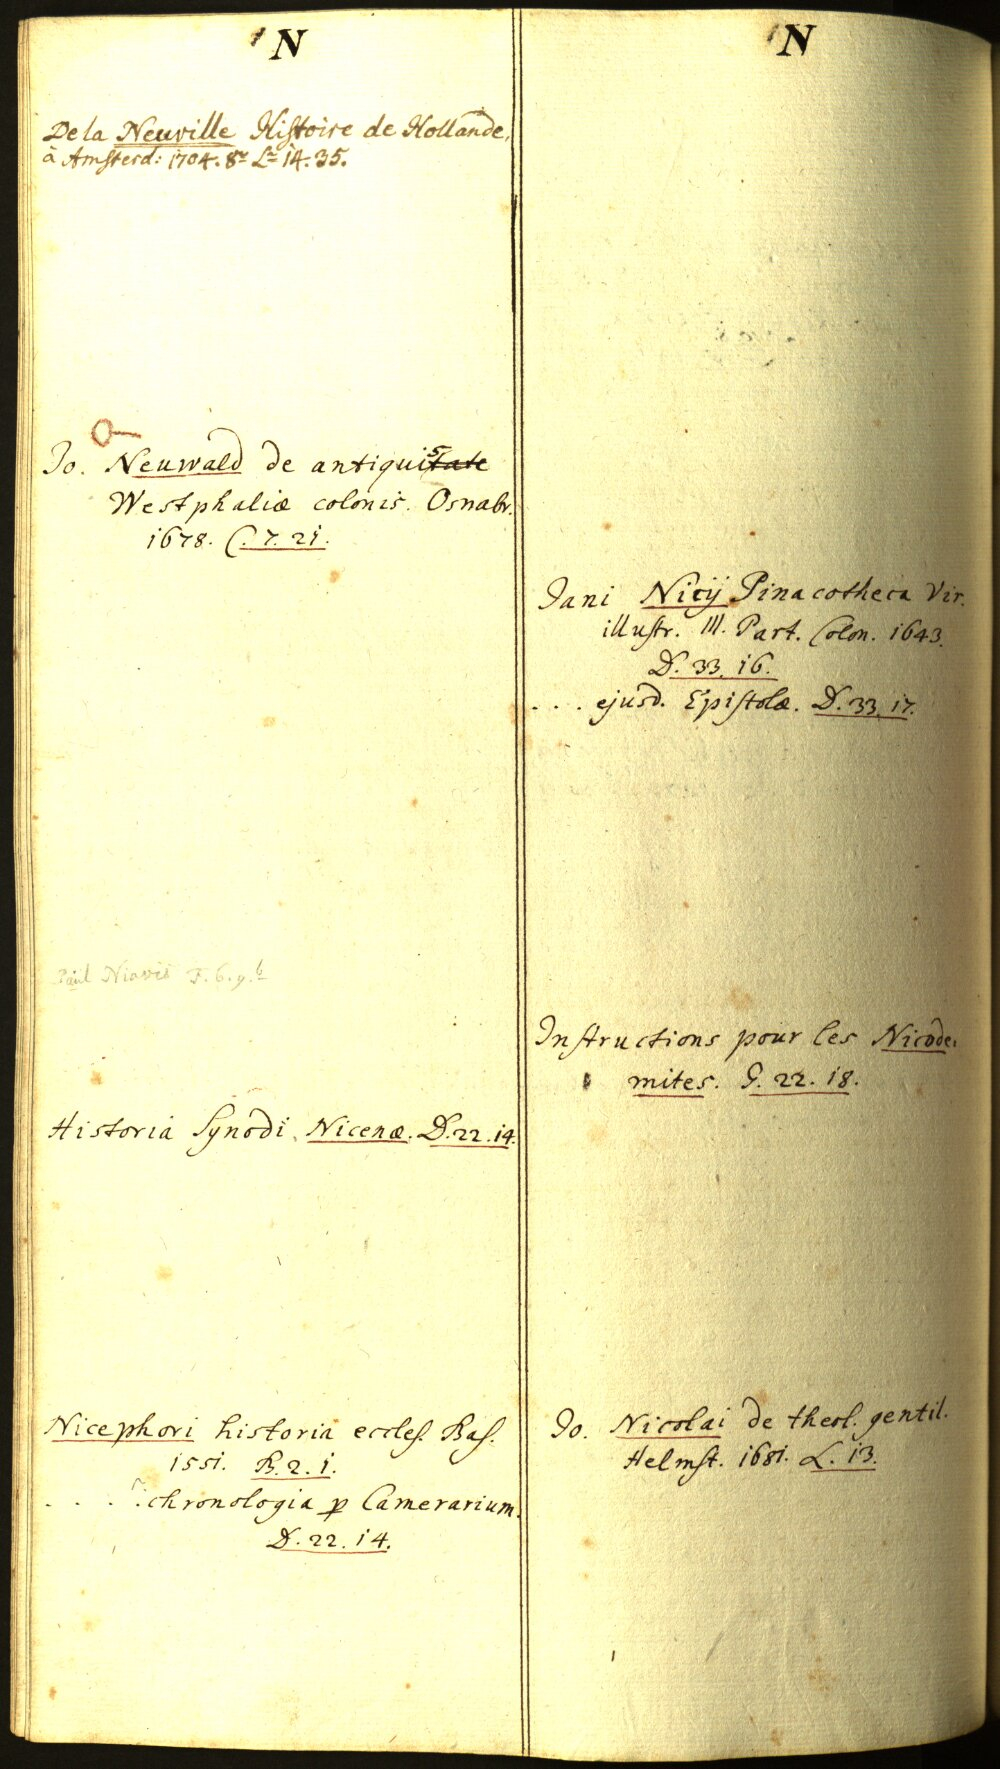 N
De la Neuville Histoire de Hollande,
à Amsterd: 1704. 8º Lª 14. 35.
Jo. Neuwald de antiquis
Westphaliæ colonis. Osnabr.
1678. C. 7. 21.
Paul Niavis F. 6. 9. b
Historia Synodi Nicenæ. D. 22. 14.
Nicephori historia eccles. Bas.
1551. B. 2. 1.
. . . . chronologia p Camerarium.
D. 22. 14.
N
Jani Nicij Pinacotheca Vir.
illustr. III. Part. Colon. 1643.
D. 33. 16.
. . . ejusd. Epistolæ. D. 33. 17.
Instructions pour les Nicode-
mites. G. 22. 18.
Jo. Nicolai de theol. gentil.
Helmst. 1681. L. 13.